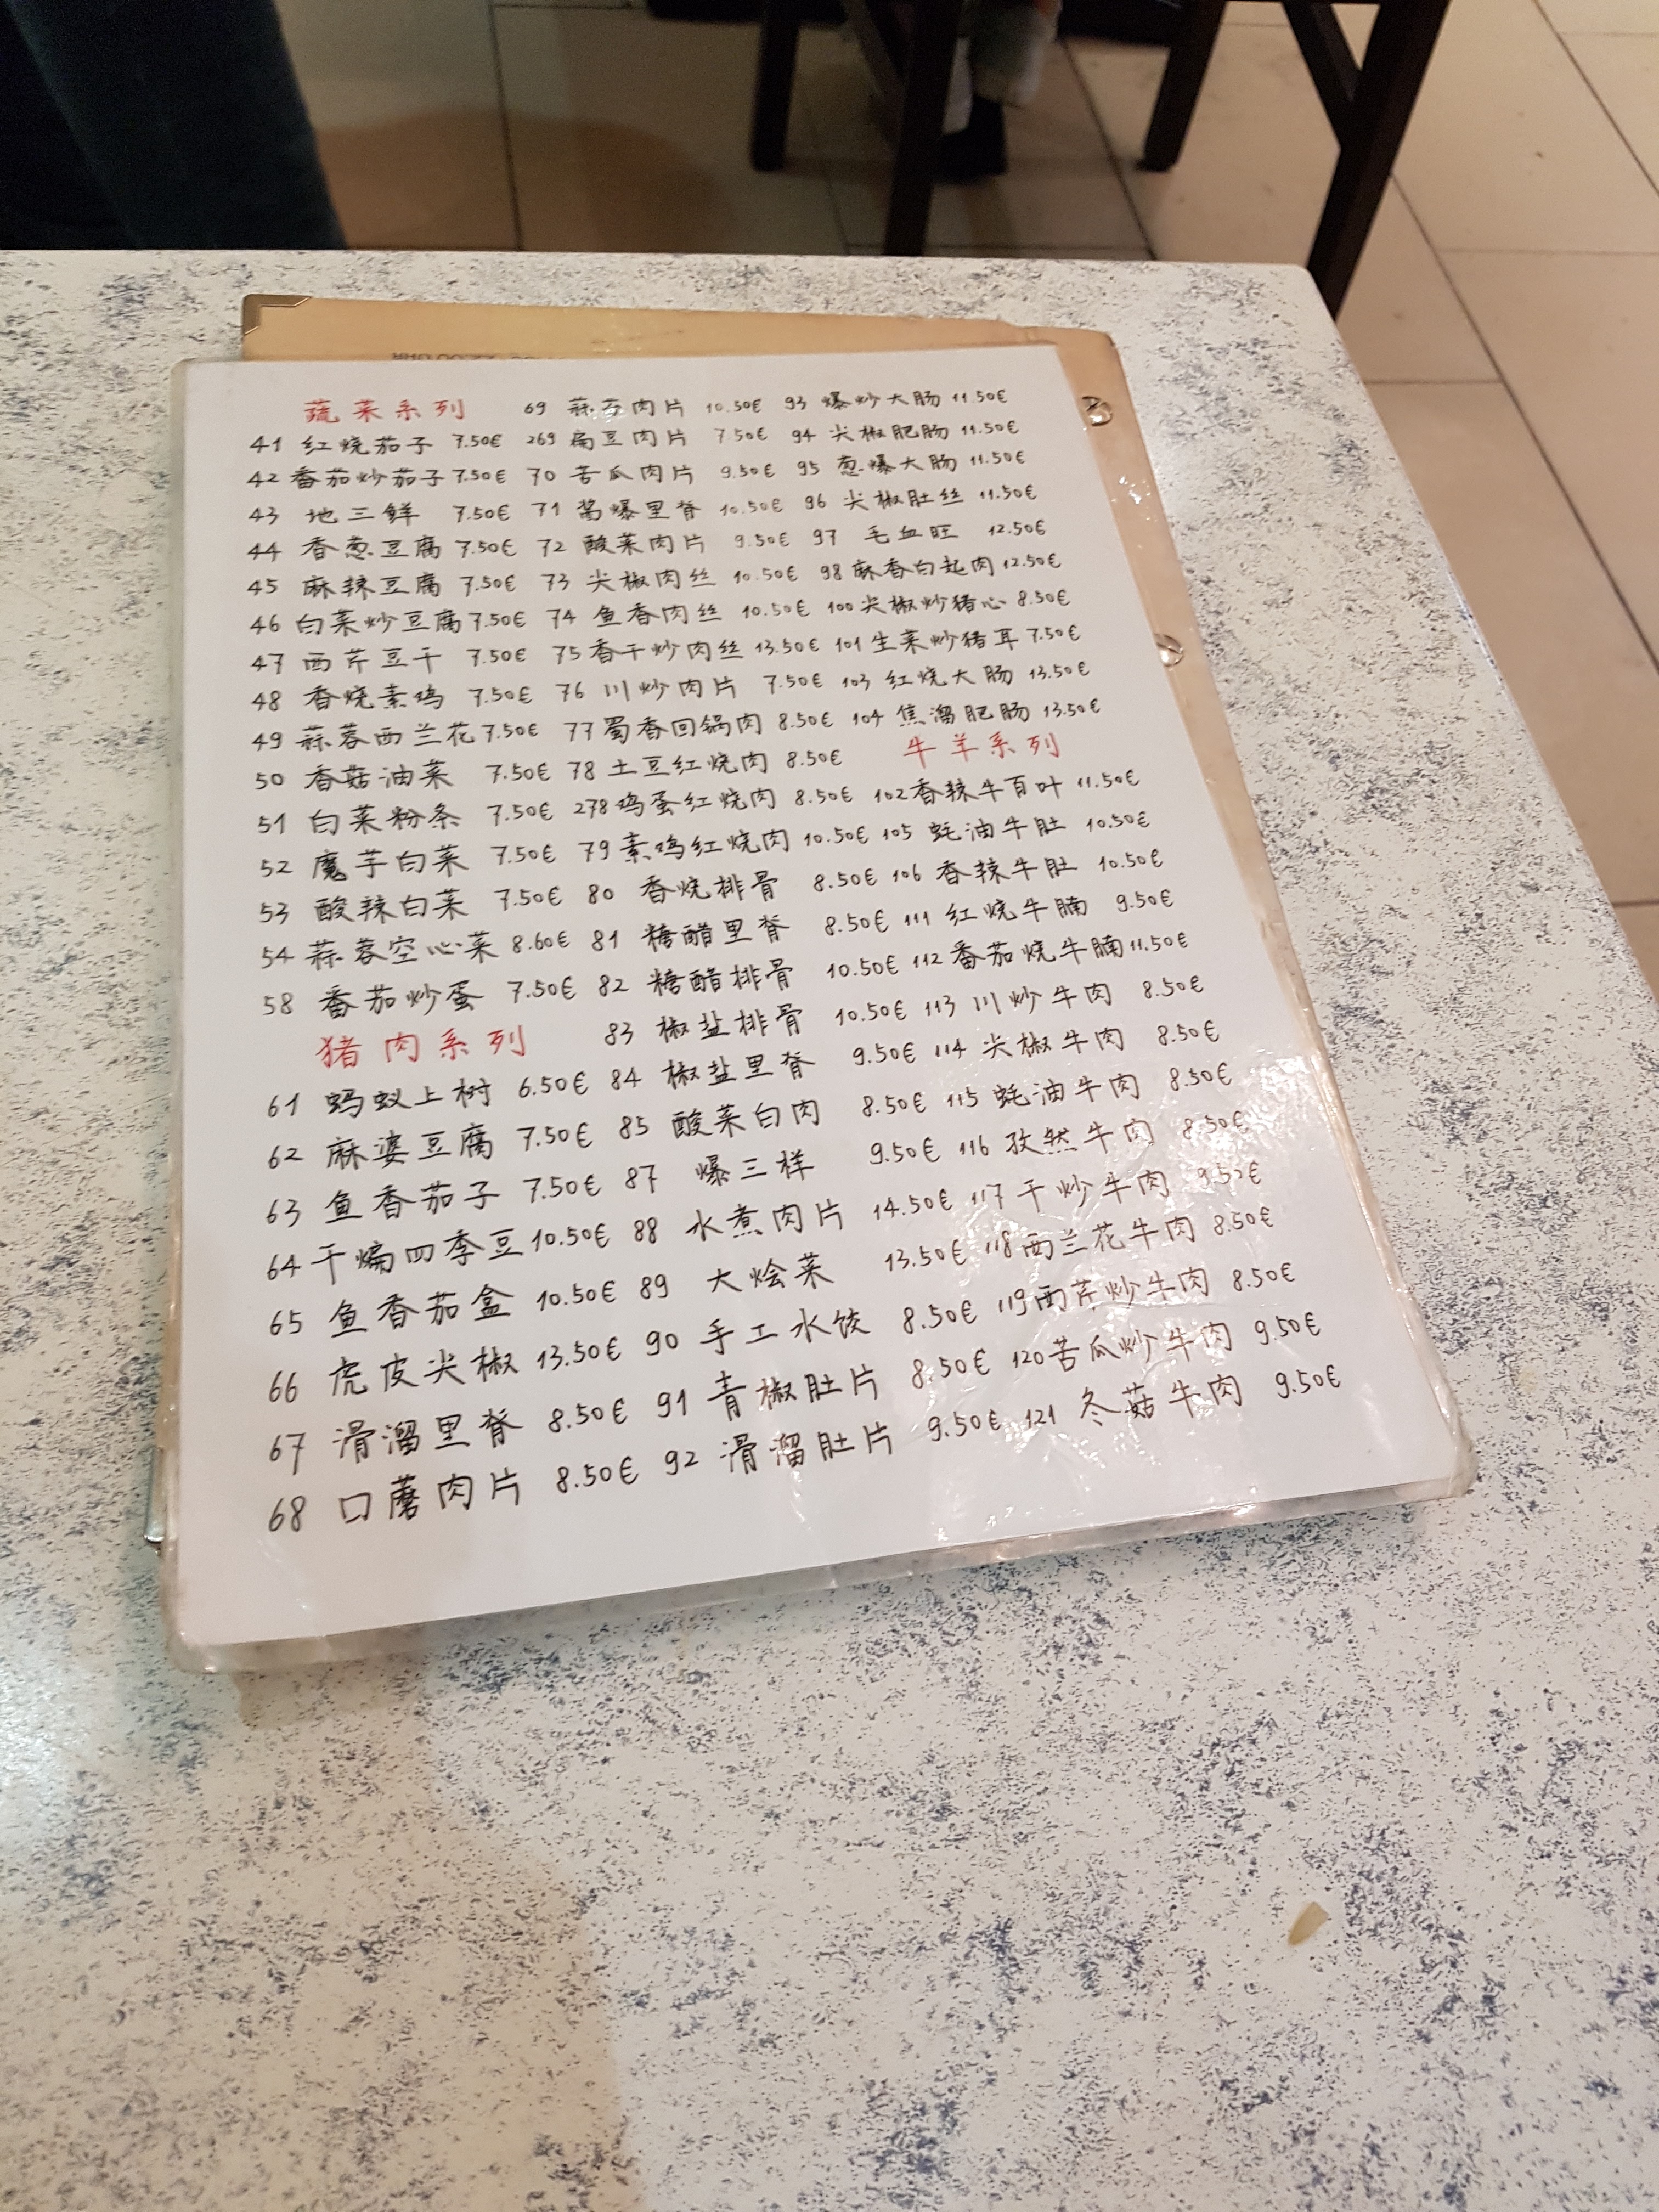 蔬菜系列 69 蒜苔肉片 10.50€ 93 爆炒大肠 11.50€
41 红烧茄子 7.50€ 269 扁豆肉片 7.50€ 94 尖椒肥肠 11.50€
42 番茄炒茄子 7.50€ 70 苦瓜肉片 9.50€ 95 葱爆大肠 11.50€
43 地三鲜 7.50€ 71 酱爆里脊 10.50€ 96 尖椒肚丝 11.50€
44 香葱豆腐 7.50€ 72 酸菜肉片 9.50€ 97 毛血旺 12.50€
45 麻辣豆腐 7.50€ 73 尖椒肉丝 10.50€ 98 麻香白起肉 12.50€
46 白菜炒豆腐 7.50€ 74 鱼香肉丝 10.50€ 100 尖椒炒猪心 8.50€
47 西芹豆干 7.50€ 75 香干炒肉丝 13.50€ 101 生菜炒猪耳 7.50€
48 香烧素鸡 7.50€ 76 川炒肉片 7.50€ 103 红烧大肠 13.50€
49 蒜蓉西兰花 7.50€ 77 蜀香回锅肉 8.50€ 104 焦溜肥肠 13.50€
50 香菇油菜 7.50€ 78 土豆红烧肉 8.50€ 牛羊系列
51 白菜粉条 7.50€ 278 鸡蛋红烧肉 8.50€ 102 香辣牛百叶 11.50€
52 魔芋白菜 7.50€ 79 素鸡红烧肉 10.50€ 105 蚝油牛肚 10.50€
53 酸辣白菜 7.50€ 80 香烧排骨 8.50€ 106 香辣牛肚 10.50€
54 蒜蓉空心菜 8.60€ 81 糖醋里脊 8.50€ 111 红烧牛腩 9.50€
58 番茄炒蛋 7.50€ 82 糖醋排骨 10.50€ 112 番茄烧牛腩 11.50€
猪肉系列 83 椒盐排骨 10.50€ 113 川炒牛肉 8.50€
61 蚂蚁上树 6.50€ 84 椒盐里脊 9.50€ 114 尖椒牛肉 8.50€
62 麻婆豆腐 7.50€ 85 酸菜白肉 8.50€ 115 蚝油牛肉 8.50€
63 鱼香茄子 7.50€ 87 爆三样 9.50€ 116 孜然牛肉 8.50€
64 干煸四季豆 10.50€ 88 水煮肉片 14.50€ 117 干炒牛肉 9.50€
65 鱼香茄盒 10.50€ 89 大烩菜 13.50€ 118 西兰花牛肉 8.50€
66 虎皮尖椒 13.50€ 90 手工水饺 8.50€ 119 西芹炒牛肉 8.50€
67 滑溜里脊 8.50€ 91 青椒肚片 8.50€ 120 苦瓜炒牛肉 9.50€
68 口蘑肉片 8.50€ 92 滑溜肚片 9.50€ 121 冬菇牛肉 9.50€